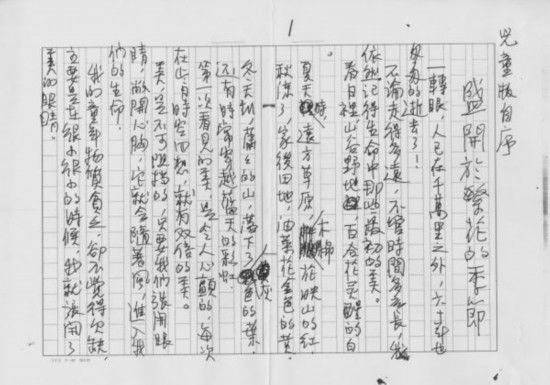 1
兒童版自序
盛開於繁花的季節
一轉眼，人已在千萬里之外，六十年也
匆匆的逝去了！
不論走得多遠，不管時間多長，我
依然記得生命中那些最初的美。
春日裡，山谷野地，百合花靈醒的白
夏天時，遠方草原，木棉花映山的紅
秋深了，家後田地，油菜花金色的黃
冬天到，蕭蕭的山，落下了灰色的葉。
還有時常穿越藍天的彩虹
第一次看見的美，是令人心顫的，每次
在山當時空回想，就有双倍的美。
美，是不可阻擋的，只要我們張開眼
睛，敞開心胸，它就會隨著風，進入我
們的生命。
我的童年物質貧乏，卻不覺得欠缺，
主要是在很小很小的時候，我就張開了
美的眼睛。